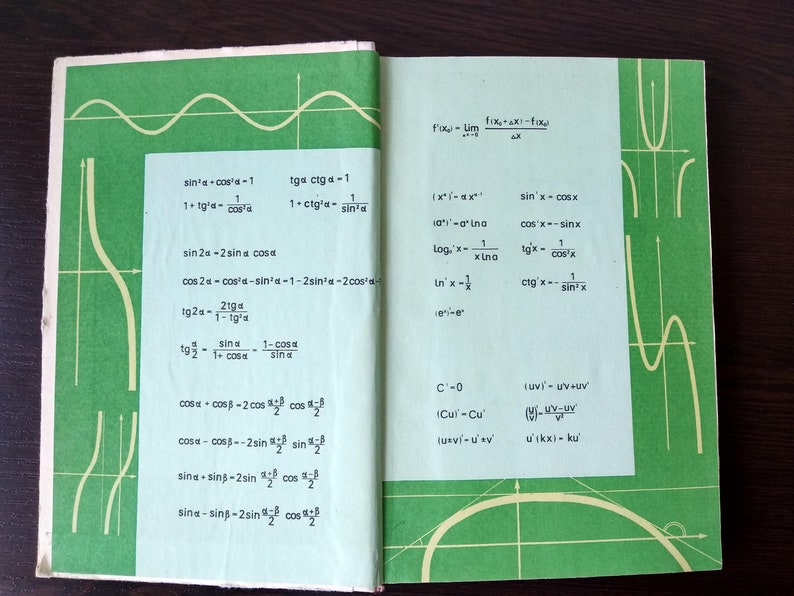 sin²α + cos²α = 1    tgα ctgα = 1
1 + tg²α = 1/cos²α    1 + ctg²α = 1/sin²α
sin2α = 2sinα cosα
cos2α = cos²α − sin²α = 1 − 2sin²α = 2cos²α −
tg2α = 2tgα/(1 − tg²α)
tg α/2 = sinα/(1 + cosα) = (1 − cosα)/sinα
cosα + cosβ = 2cos (α+β)/2 cos (α−β)/2
cosα − cosβ = −2sin (α+β)/2 sin (α−β)/2
sinα + sinβ = 2sin (α+β)/2 cos (α−β)/2
sinα − sinβ = 2sin (α−β)/2 cos (α+β)/2
f'(x₀) = lim Δx→0 (f(x₀ + Δx) − f(x₀))/Δx
(xᵅ)' = αxᵅ⁻¹    sin'x = cosx
(aˣ)' = aˣ lna    cos'x = −sinx
logₐ'x = 1/(x lna)    tg'x = 1/cos²x
ln'x = 1/x    ctg'x = −1/sin²x
(eˣ)' = eˣ
C' = 0    (uv)' = u'v + uv'
(Cu)' = Cu'    (u/v)' = (u'v − uv')/v²
(u±v)' = u' ± v'    u'(kx) = ku'